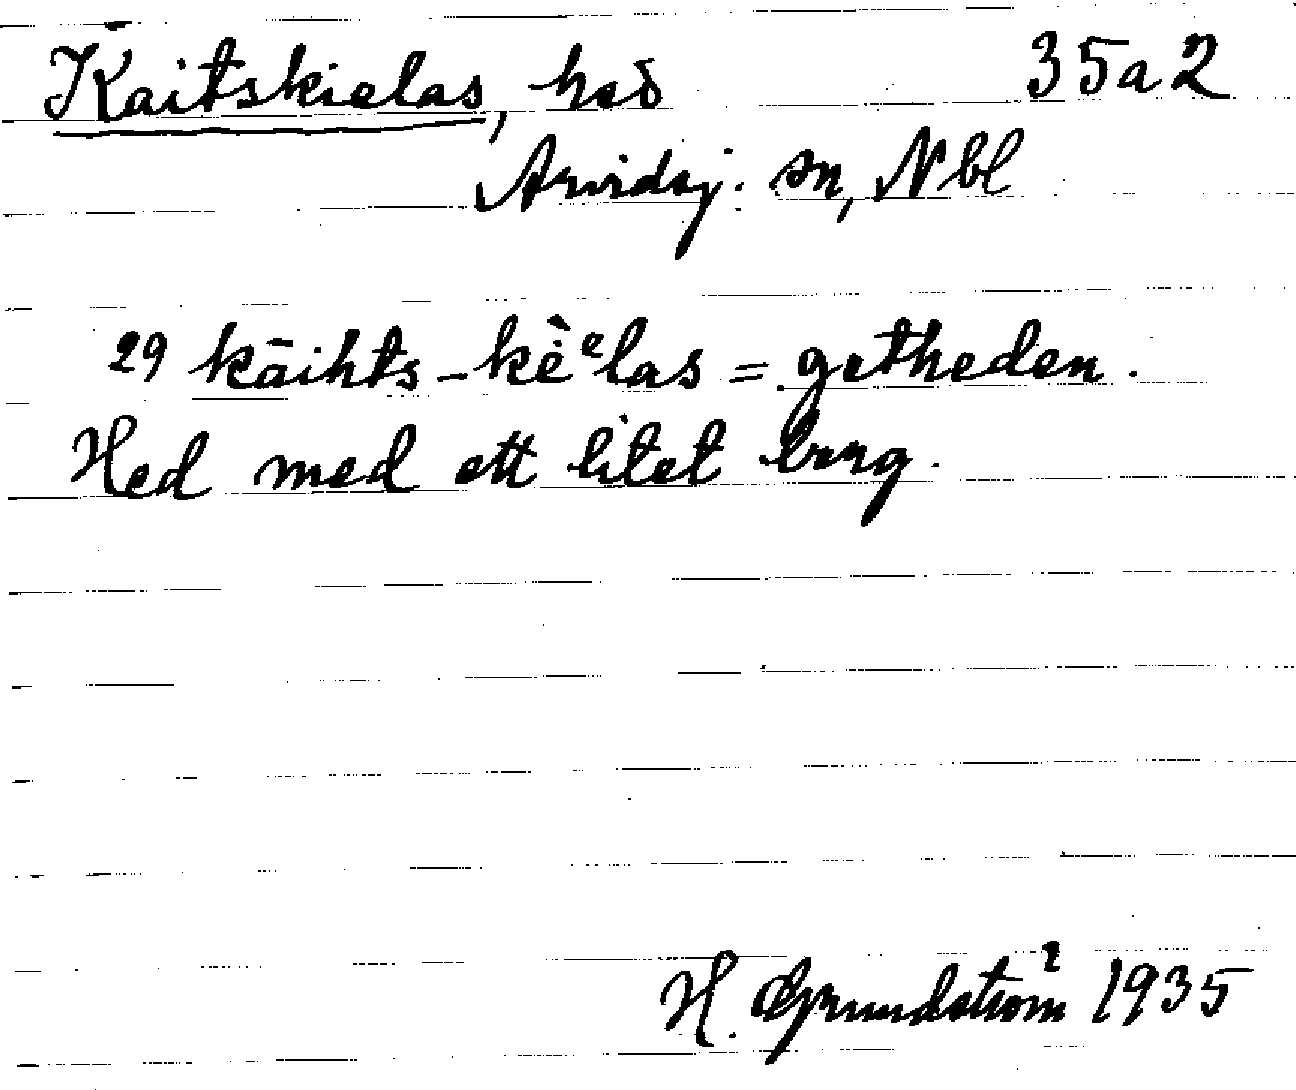 Kaitskielas, hed 35a2
Arvidsj. sn, Nbl
29 kāihts-kèᵉlas = getheden.
Hed med ett litet berg.
H. Grundström 1935